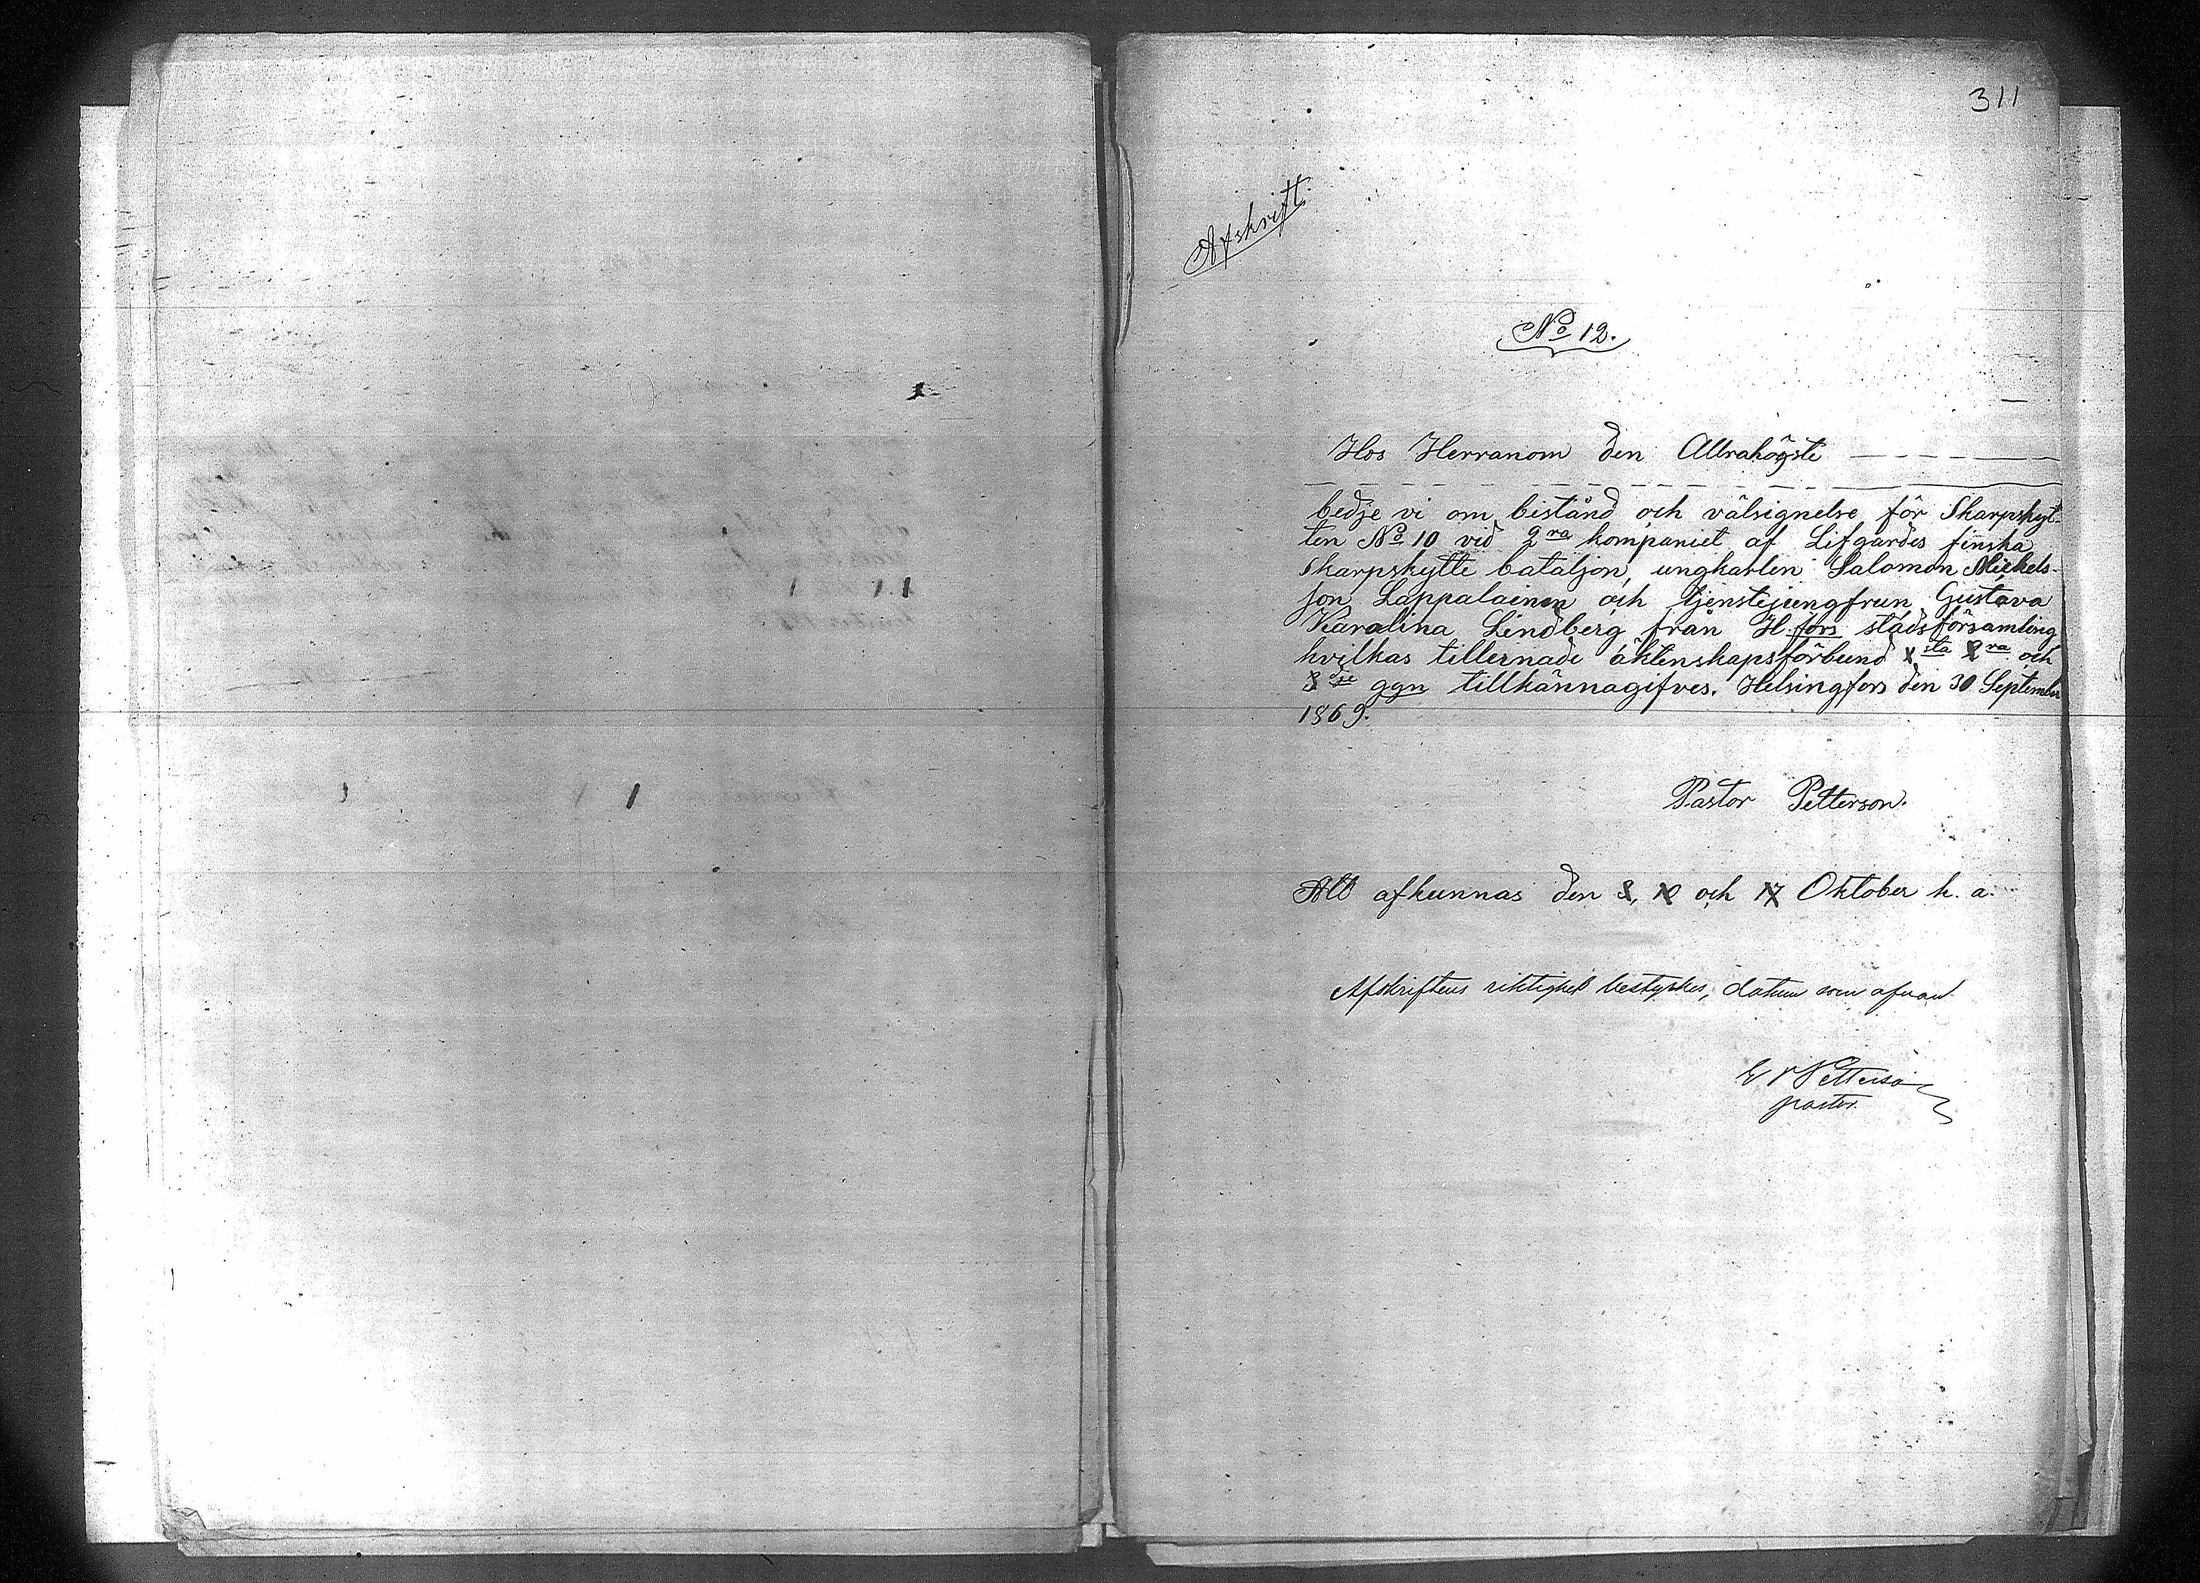 311
Afskrift.
No 12.
Hos Herranom den Allrahögste
bedje vi om bistånd och välsignelse för Skarpskyt-
ten No 10 vid 2ra kompaniet af Lifgardes finska
Skarpskytte bataljon, ungkarlen Salomon Mickels-
son Lappalainen och tjenstejungfrun Gustava
Karolina Lindberg från H.fors stadsförsamling
hvilkas tillernade äktenskapsförbund 1sta 2ra och
3dje ggn tillkännagifves. Helsingfors den 30 September
1869.
Pastor Petterson.
Att afkunnas den 3, 10 och 17 Oktober h. a.
Afskriftens riktighet bestyrkes, datum som ofvan
Petterson
pastor.